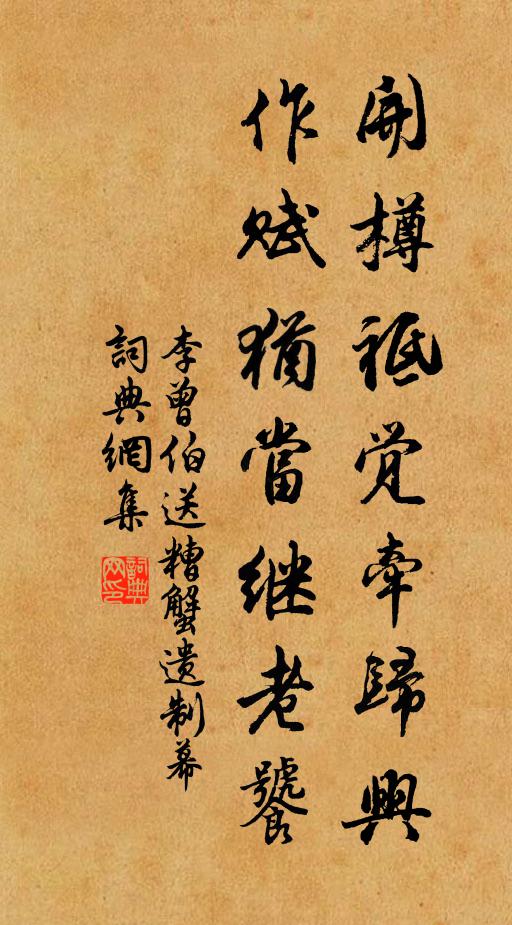 開樽祗覺牽歸興
作賦猶當継老饕
李曾伯送糟蟹遺制幕
詞典網集
詞典网印